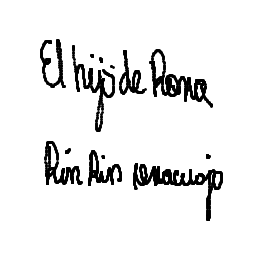 El hijo de Rana
Rin Rin renacuajo